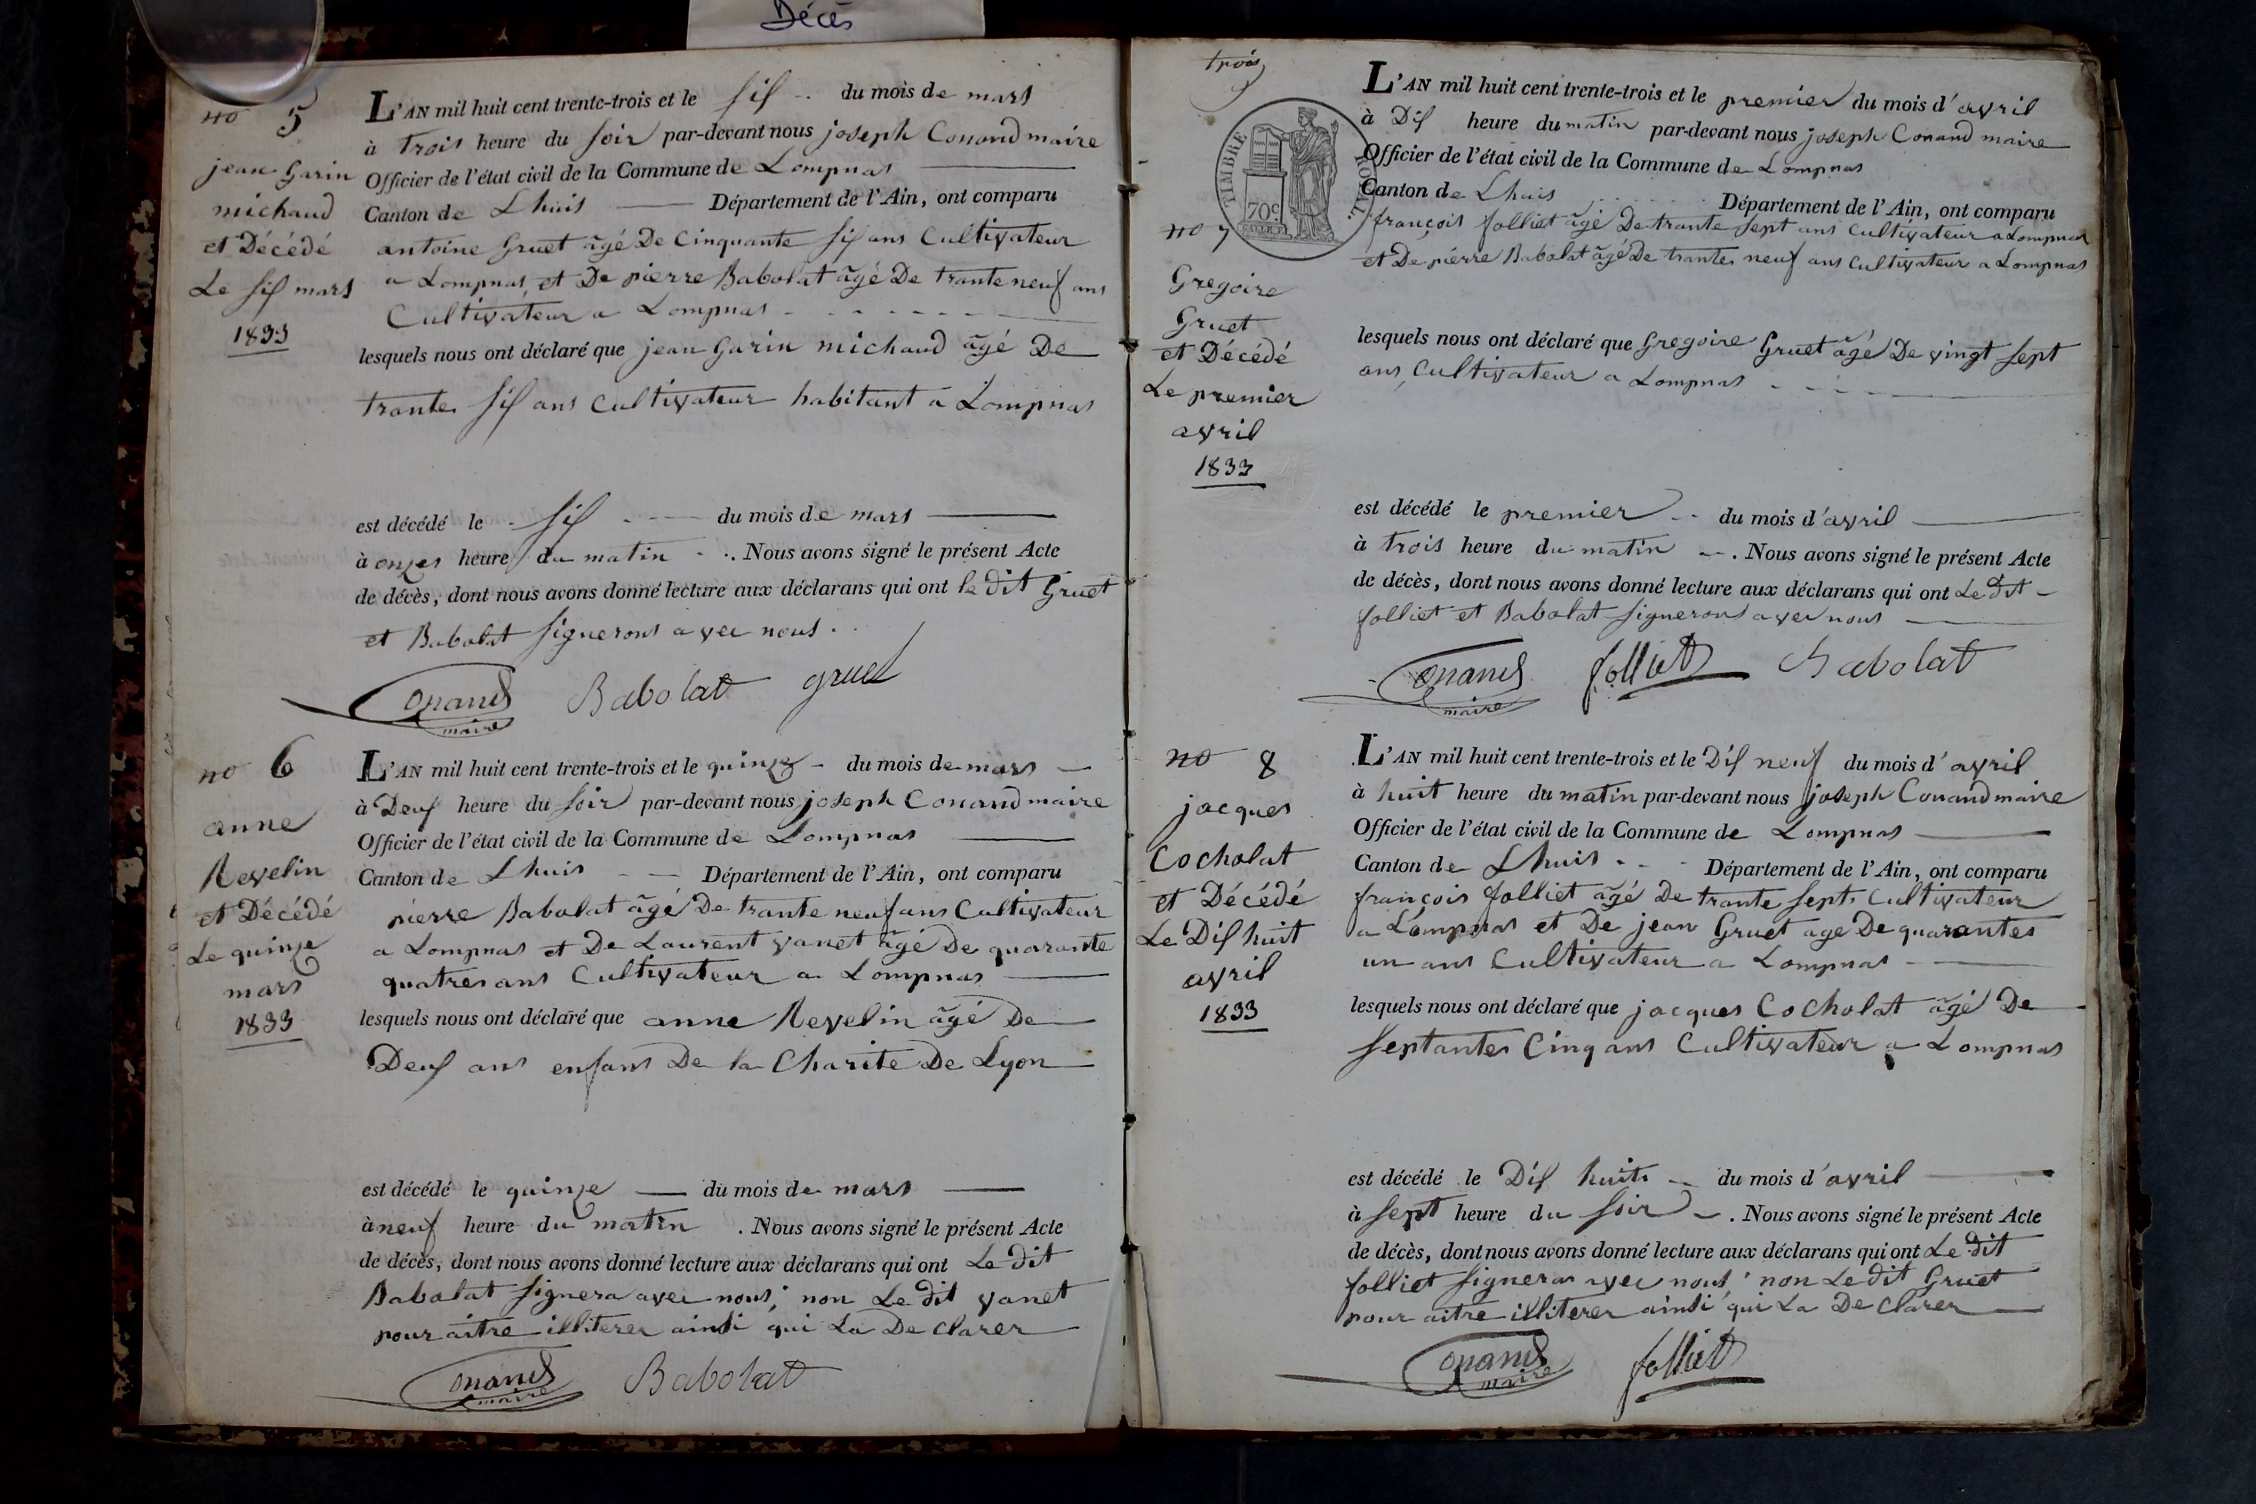 Décès
no 5
jean Garin
michaud
et Décédé
Le sif mars
1833
L'AN mil huit cent trente-trois et le sif du mois de mars
à trois heure du soir par-devant nous joseph Conand maire
Officier de l'état civil de la Commune de Lompnas
Canton de Lhuis Département de l'Ain, ont comparu
antoine Gruet âgé De Cinquante sif ans Cultivateur
a Lompnas et De pierre Babolat âgé De trante neuf ans
Cultivateur a Lompnas
lesquels nous ont déclaré que jean Garin michaud âgé De
trante sif ans cultivateur habitant a Lompnas
est décédé le sif du mois de mars
à onzes heure du matin . Nous avons signé le présent Acte
de décès, dont nous avons donné lecture aux déclarans qui ont le dit Gruet
et Babolat signerons avec nous.
Conand
maire
Babolat
gruet
no 6
anne
Revelin
et Décédé
Le quinze
mars
1833
L'AN mil huit cent trente-trois et le quinze du mois de mars
à Deuf heure du soir par-devant nous joseph Conand maire
Officier de l'état civil de la Commune de Lompnas
Canton de Lhuis Département de l'Ain, ont comparu
pierre Babolat âgé De trante neuf ans Cultivateur
a Lompnas et De Laurent vanet âgé De quarante
quatres ans Cultivateur a Lompnas
lesquels nous ont déclaré que anne Revelin âgé De
Deuf ans enfans De la Charite De Lyon
est décédé le quinze du mois de mars
à neuf heure du matin . Nous avons signé le présent Acte
de décès, dont nous avons donné lecture aux déclarans qui ont Le dit
Babolat signera avec nous; non Le dit vanet
pour aitre illiterer ainsi qui La De clarer
Conand
maire
Babolat
trois
TIMBRE ROYAL
70c
no 7
Gregoire
Gruet
et Décédé
Le premier
avril
1833
L'AN mil huit cent trente-trois et le premier du mois d'avril
à Dif heure du matin par-devant nous joseph Conand maire
Officier de l'état civil de la Commune de Lompnas
Canton de Lhuis Département de l'Ain, ont comparu
françois folliet âgé De trante sept ans cultivateur a Lompnas
et De pierre Babolat âgé De trantes neuf ans cultivateur a Lompnas
lesquels nous ont déclaré que Gregoire Gruet âgé De vingt sept
ans, Cultivateur a Lompnas
est décédé le premier du mois d'avril
à trois heure du matin . Nous avons signé le présent Acte
de décès, dont nous avons donné lecture aux déclarans qui ont Le dit
folliet et Babolat signerons avec nous
Conand
maire
folliet
Babolat
no 8
jacques
Cocholat
et Décédé
Le Dif huit
avril
1833
L'AN mil huit cent trente-trois et le Dif neuf du mois d'avril
à huit heure du matin par-devant nous joseph Conand maire
Officier de l'état civil de la Commune de Lompnas
Canton de Lhuis Département de l'Ain, ont comparu
françois folliet âgé De trante sept. Cultivateur
a Lompnas et De jean Gruet age De quarantes
un ans Cultivateur a Lompnas
lesquels nous ont déclaré que jacques Cocholat âgé De
septantes Cinq ans Cultivateur a Lompnas
est décédé le Dif huit du mois d'avril
à sept heure du soir . Nous avons signé le présent Acte
de décès, dont nous avons donné lecture aux déclarans qui ont Le dit
folliet signera avec nous; non Le dit Gruet
pour aitre illiterer ainsi qui La De clarer
Conand
maire
folliet